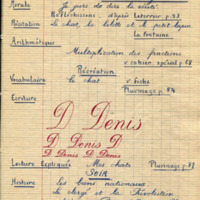 Morale Je jure de dire la vérité.
Réfléchissons, d'après Leterrier p.53
Récitation Le chat, la belette et le petit lapin
La Fontaine
Arithmétique
Multiplication des fractions
v. cahier spécial p.68
Récréation
Vocabulaire Le chat v. fiches
Plumage p.84
Ecriture
D Denis
D Denis D
D Denis D Denis
Lecture Expliquée Mes chats Plumage p.83
SOIR
Histoire Les biens nationaux
Le clergé et la Révolution